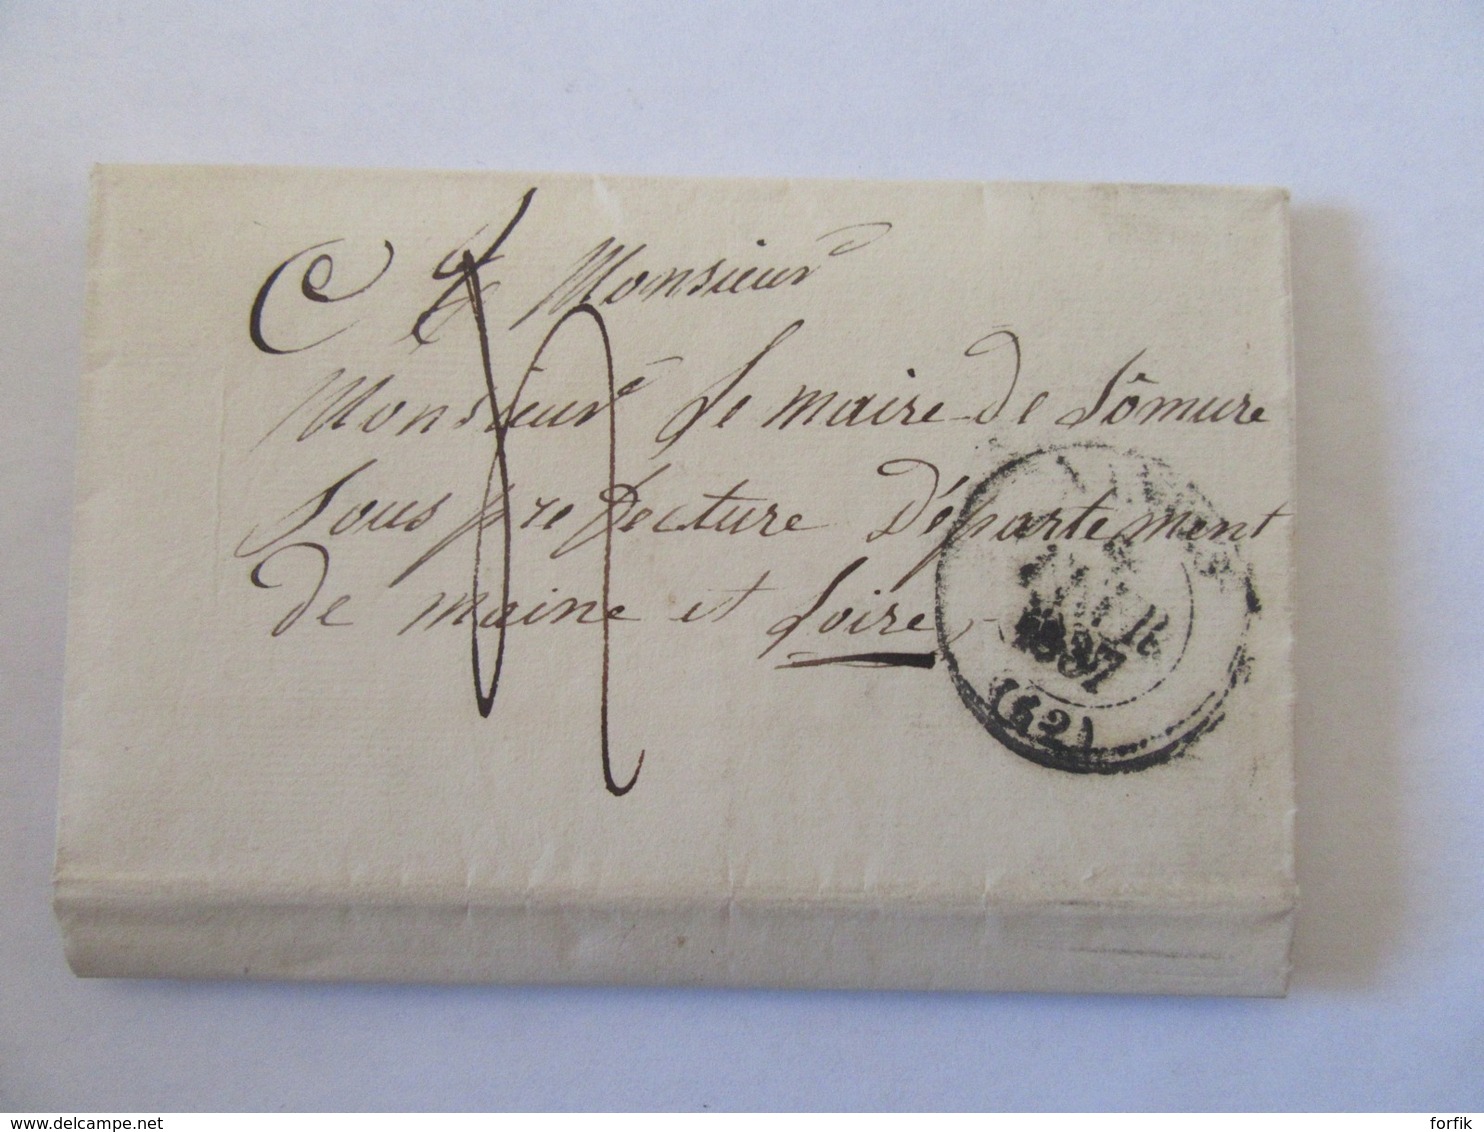 Monsieur
Monsieur Le maire de Sômure
Sous prefecture Département
de maine et Loire
1837
(42)
www.delcampe.net
forfik